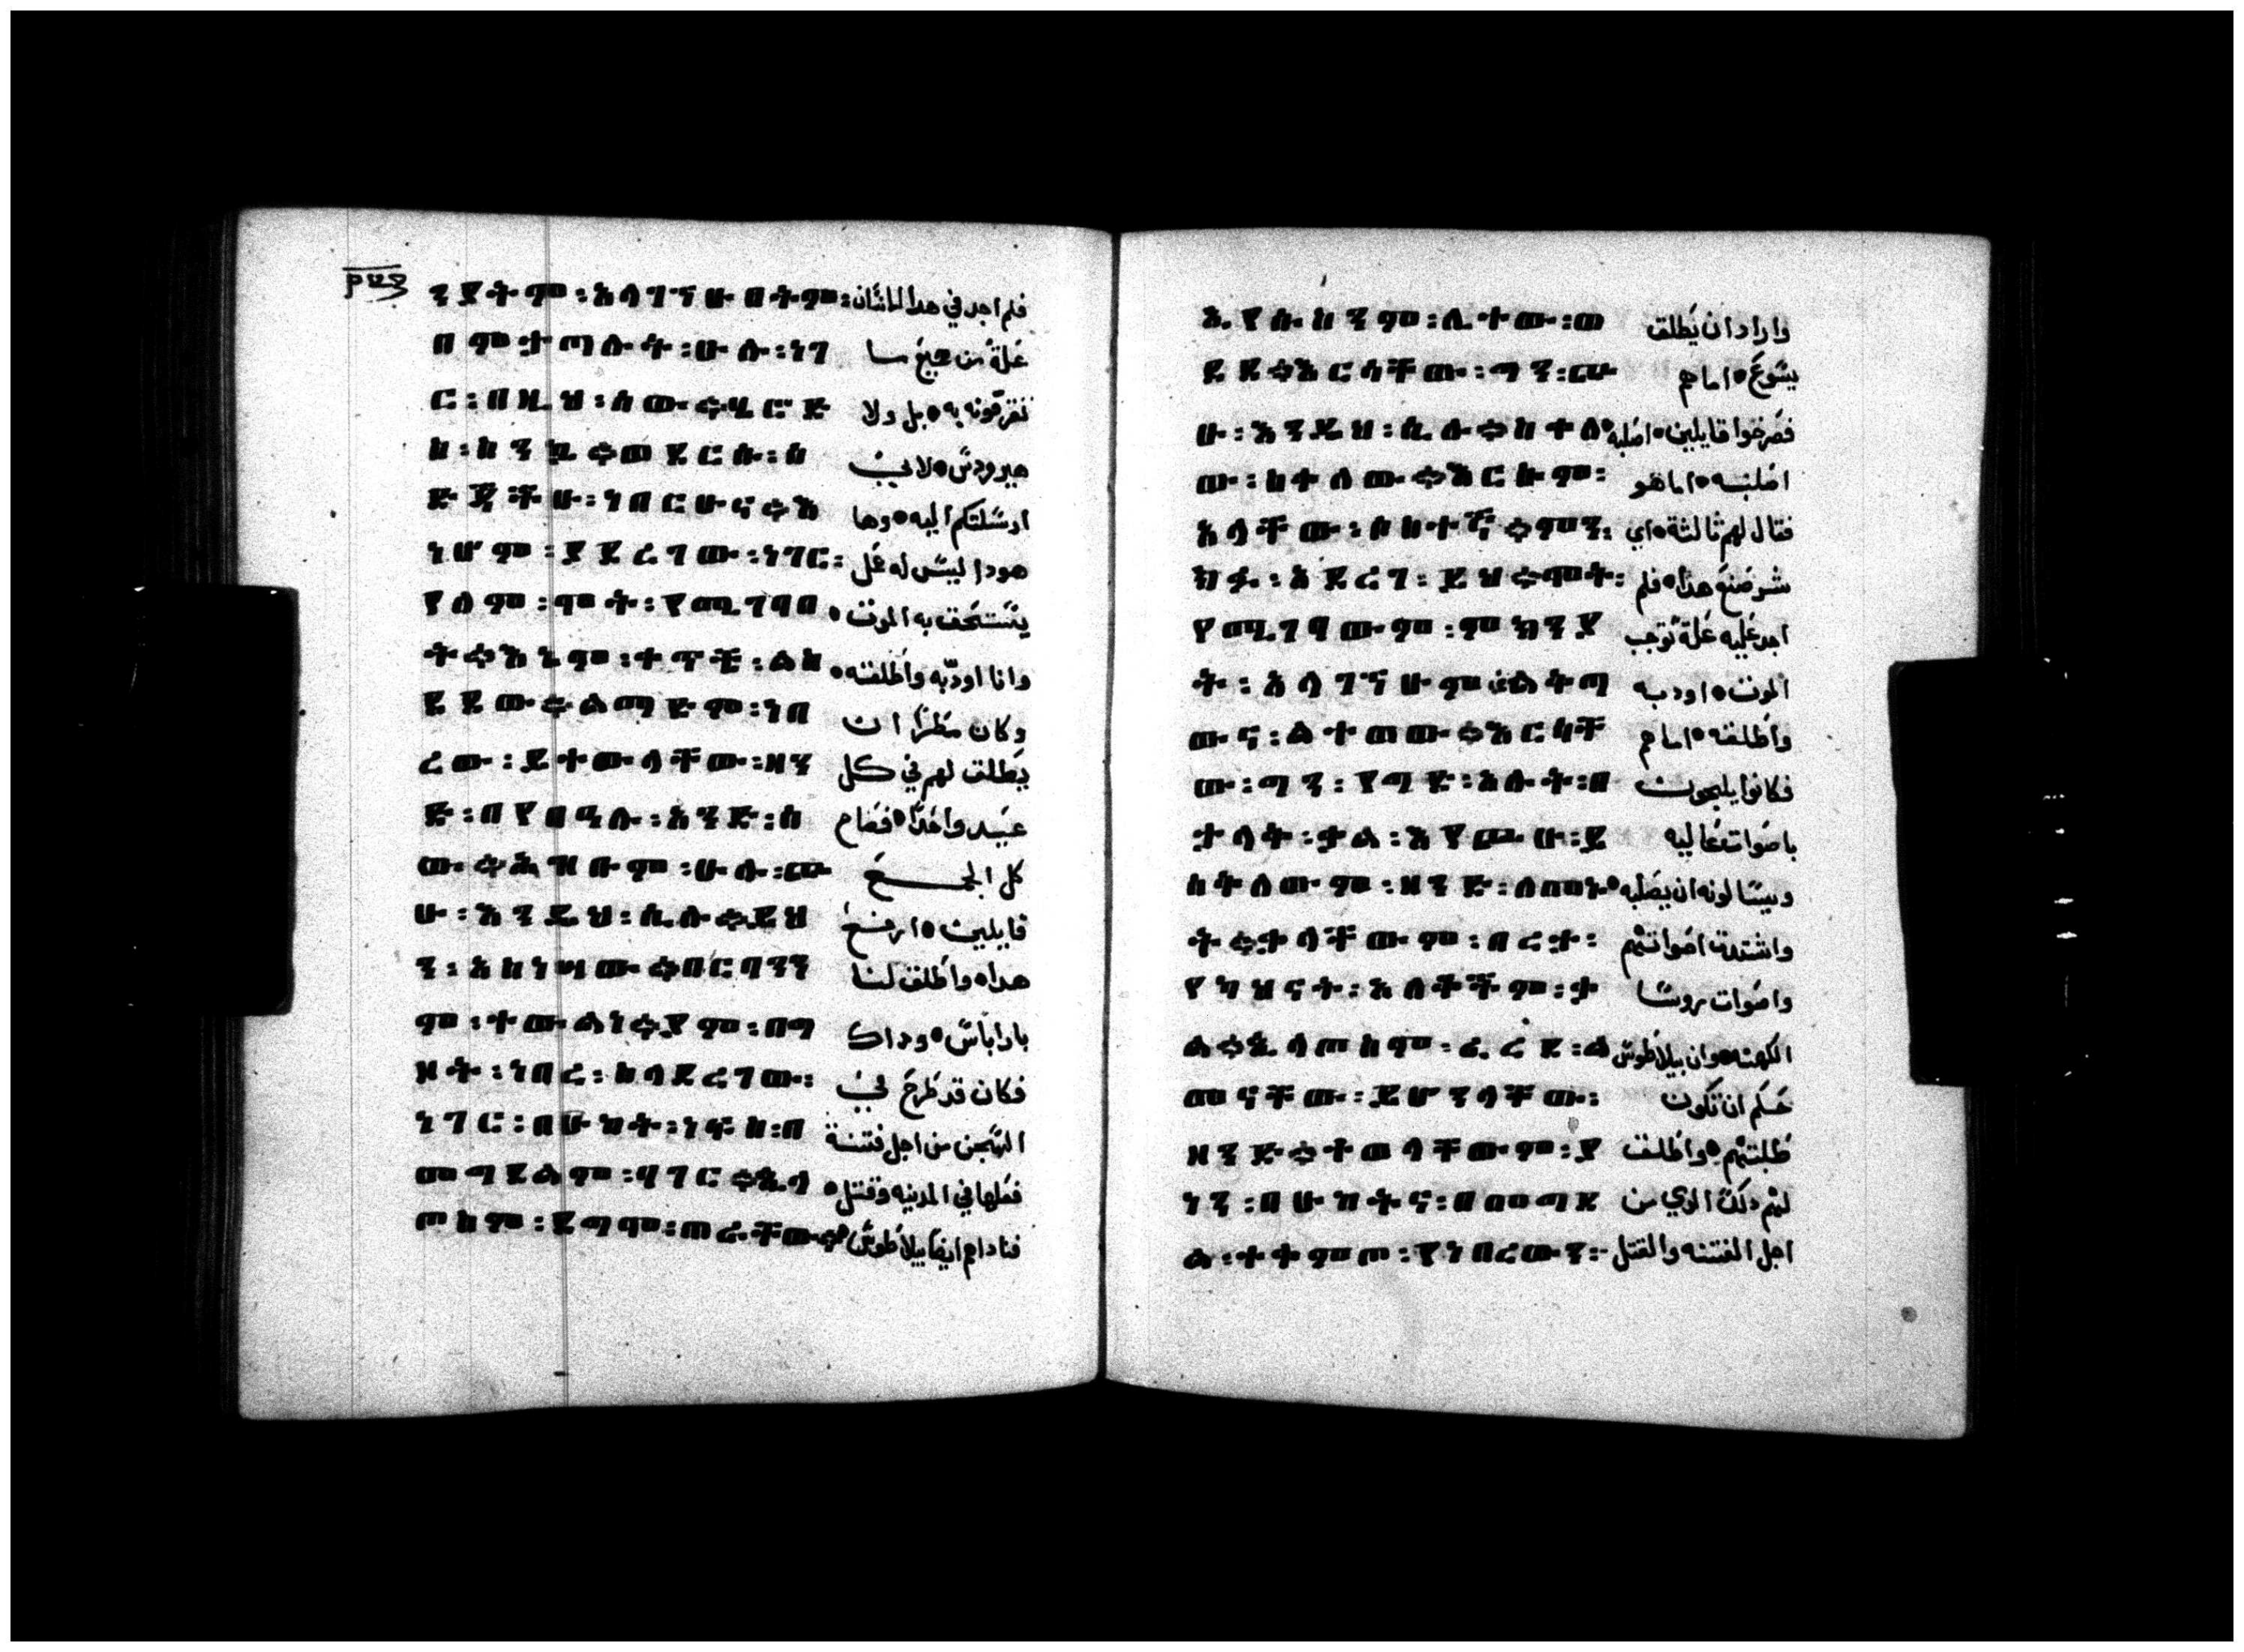 ፻፵፯
ንያትም፡አላገኘሁበትም፡ فلم اجد في هدا الانسان
በምታጣሉት፡ሁሉ፡ነገ علة من جميع ما
ር፡በዚህ፡ሰው።ሄሮድ تقرفونه به۰ بل ولا
ስ፡ስንኳ።ወደርሱ፡ሰ هيرودس۰ لاني
ድጄችሁ፡ነበርሁና።እ ارسلتكم اليه۰ وها
ነሆም፡ያደረገው፡ነገር፡ هودا ليس له عمل
የለም፡ሞት፡የሚገባበ يستحق به الموت۰
ት።እኔም፡ቀጥቼ፡ልስ وانا اودبه واطلقه۰
ደደው።ልማድም፡ነበ وكان مضطرا ان
ረው፡ይተውላቸው፡ዘን يطلق لهم في كل
ድ፡በየበዓሉ፡አንድ፡ሰ عيد واحدا۰ فصاح
ው።ሕዝቡም፡ሁሉ፡ጮ كل الجمع
ሁ፡እንዲህ፡ሲሉ።ይህ قايلين۰ ارفع
ን፡አስነሣው።በርባንን هدا۰ واطلق لنا
ም፡ተውልነ።ያም፡በግ باراباس۰ وداك
ዞት፡ነበረ፡ስላደረገው፡ فكان قد طرح في
ነገር፡በሁከት፡ነፍስ፡በ السجن من اجل فتنة
መግደልም፡ሃገር።ጲላ فعلها في المدينه وقتل۰
ጦስም፡ደግሞ፡ጠራቸው። فناداهم ايضا بيلاطوس
ኢየሱስንም፡ሊተው፡ወ واراد ان يطلق
ደደ።እርሳቸው፡ግን፡ጮ يسوع۰ اما هم
ሁ፡እንዲህ፡ሲሉ።ስቀለ فصرخوا قايلين۰ اصلبه۰
ው፡ስቀለው።እርሱም፡ اصلبه۰ اما هو
አላቸው፡ስስተኛ።ምን፡ فقال لهم ثالثة۰ اي
ክፉ፡አደረገ፡ይህ።ሞት፡ شر صنع هدا۰ فلم
የሚገባውም፡ምክንያ اجد عليه علة توجب
ት፡አላገኘሁም።ልቅጣ الموت۰ اودبه
ውና፡ልተወው።እርሳቸ واطلقه۰ اما هم
ው፡ግን፡የማድ፡አሉት፡በ فكانوا يلجون
ታላቅ፡ቃል፡እየጮሁ፡ይ باصوات عاليه
ሰቅለውም፡ዘንድ፡ለመኑ ويسالونه ان يصلبه۰
ት።ቃላቸውም፡በረታ፡ واشتدت اصواتهم
የካህናት፡አለቆችም፡ቃ واصوات روسا
ል።ጲላጦስም፡ፈረደ፡ል الكهنه۰ وان بيلاطوس
መናቸው፡ይሆንላቸው፡ حكم ان تكون
ዘንድ።ተወላቸውም፡ያ طلبتهم۰ واطلق
ነን፡በሁከትና፡በመግደ لهم دلك الدي من
ል፡ተቀምጦ፡የነበረውን፡ اجل الفتنه والقتل